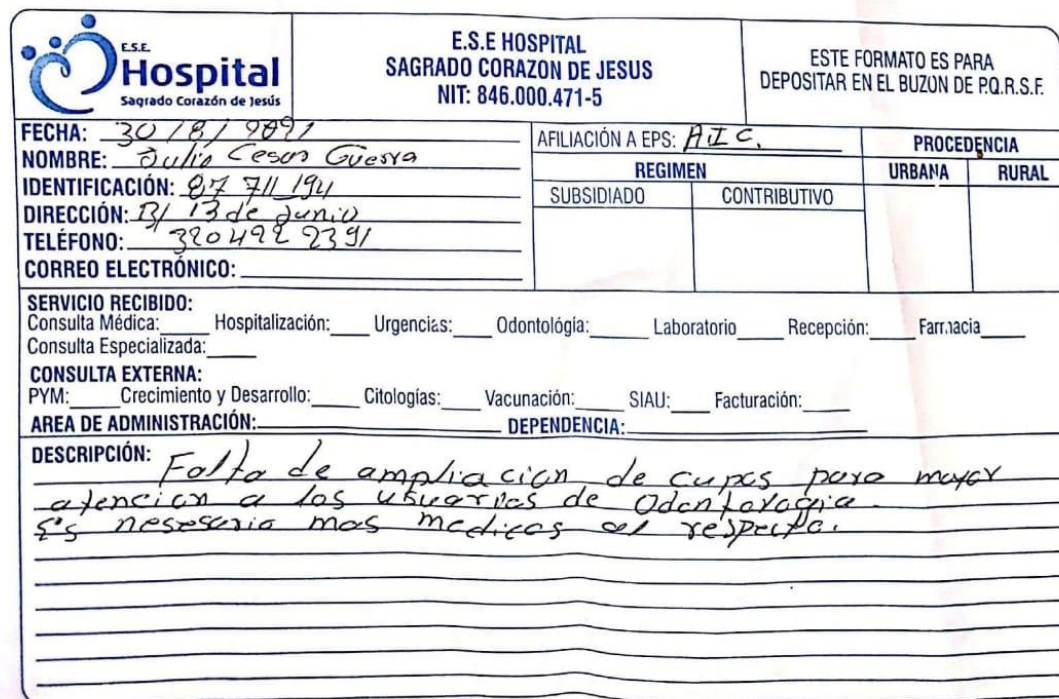 E.S.E.
Hospital
Sagrado Corazón de Jesús
E.S.E HOSPITAL
SAGRADO CORAZON DE JESUS
NIT: 846.000.471-5
ESTE FORMATO ES PARA
DEPOSITAR EN EL BUZON DE P.Q.R.S.F.
FECHA: 30/8/2021
NOMBRE: Julio Cesar Guerra
IDENTIFICACIÓN: 87 711 194
DIRECCIÓN: B/ 13 de Junio
TELÉFONO: 320 492 2391
CORREO ELECTRÓNICO:
AFILIACIÓN A EPS: A.I.C.
PROCEDENCIA
REGIMEN
URBANA RURAL
SUBSIDIADO CONTRIBUTIVO
SERVICIO RECIBIDO:
Consulta Médica:____ Hospitalización:____ Urgencias:____ Odontológía:____ Laboratorio____ Recepción:____ Farmacia____
Consulta Especializada:____
CONSULTA EXTERNA:
PYM:____ Crecimiento y Desarrollo:____ Citologías:____ Vacunación:____ SIAU:____ Facturación:____
AREA DE ADMINISTRACIÓN:____ DEPENDENCIA:____
DESCRIPCIÓN: Falta de ampliacion de cupos para mayor
atencion a los usuarios de Odontologia.
Es nesesario mas medicos al respecto.